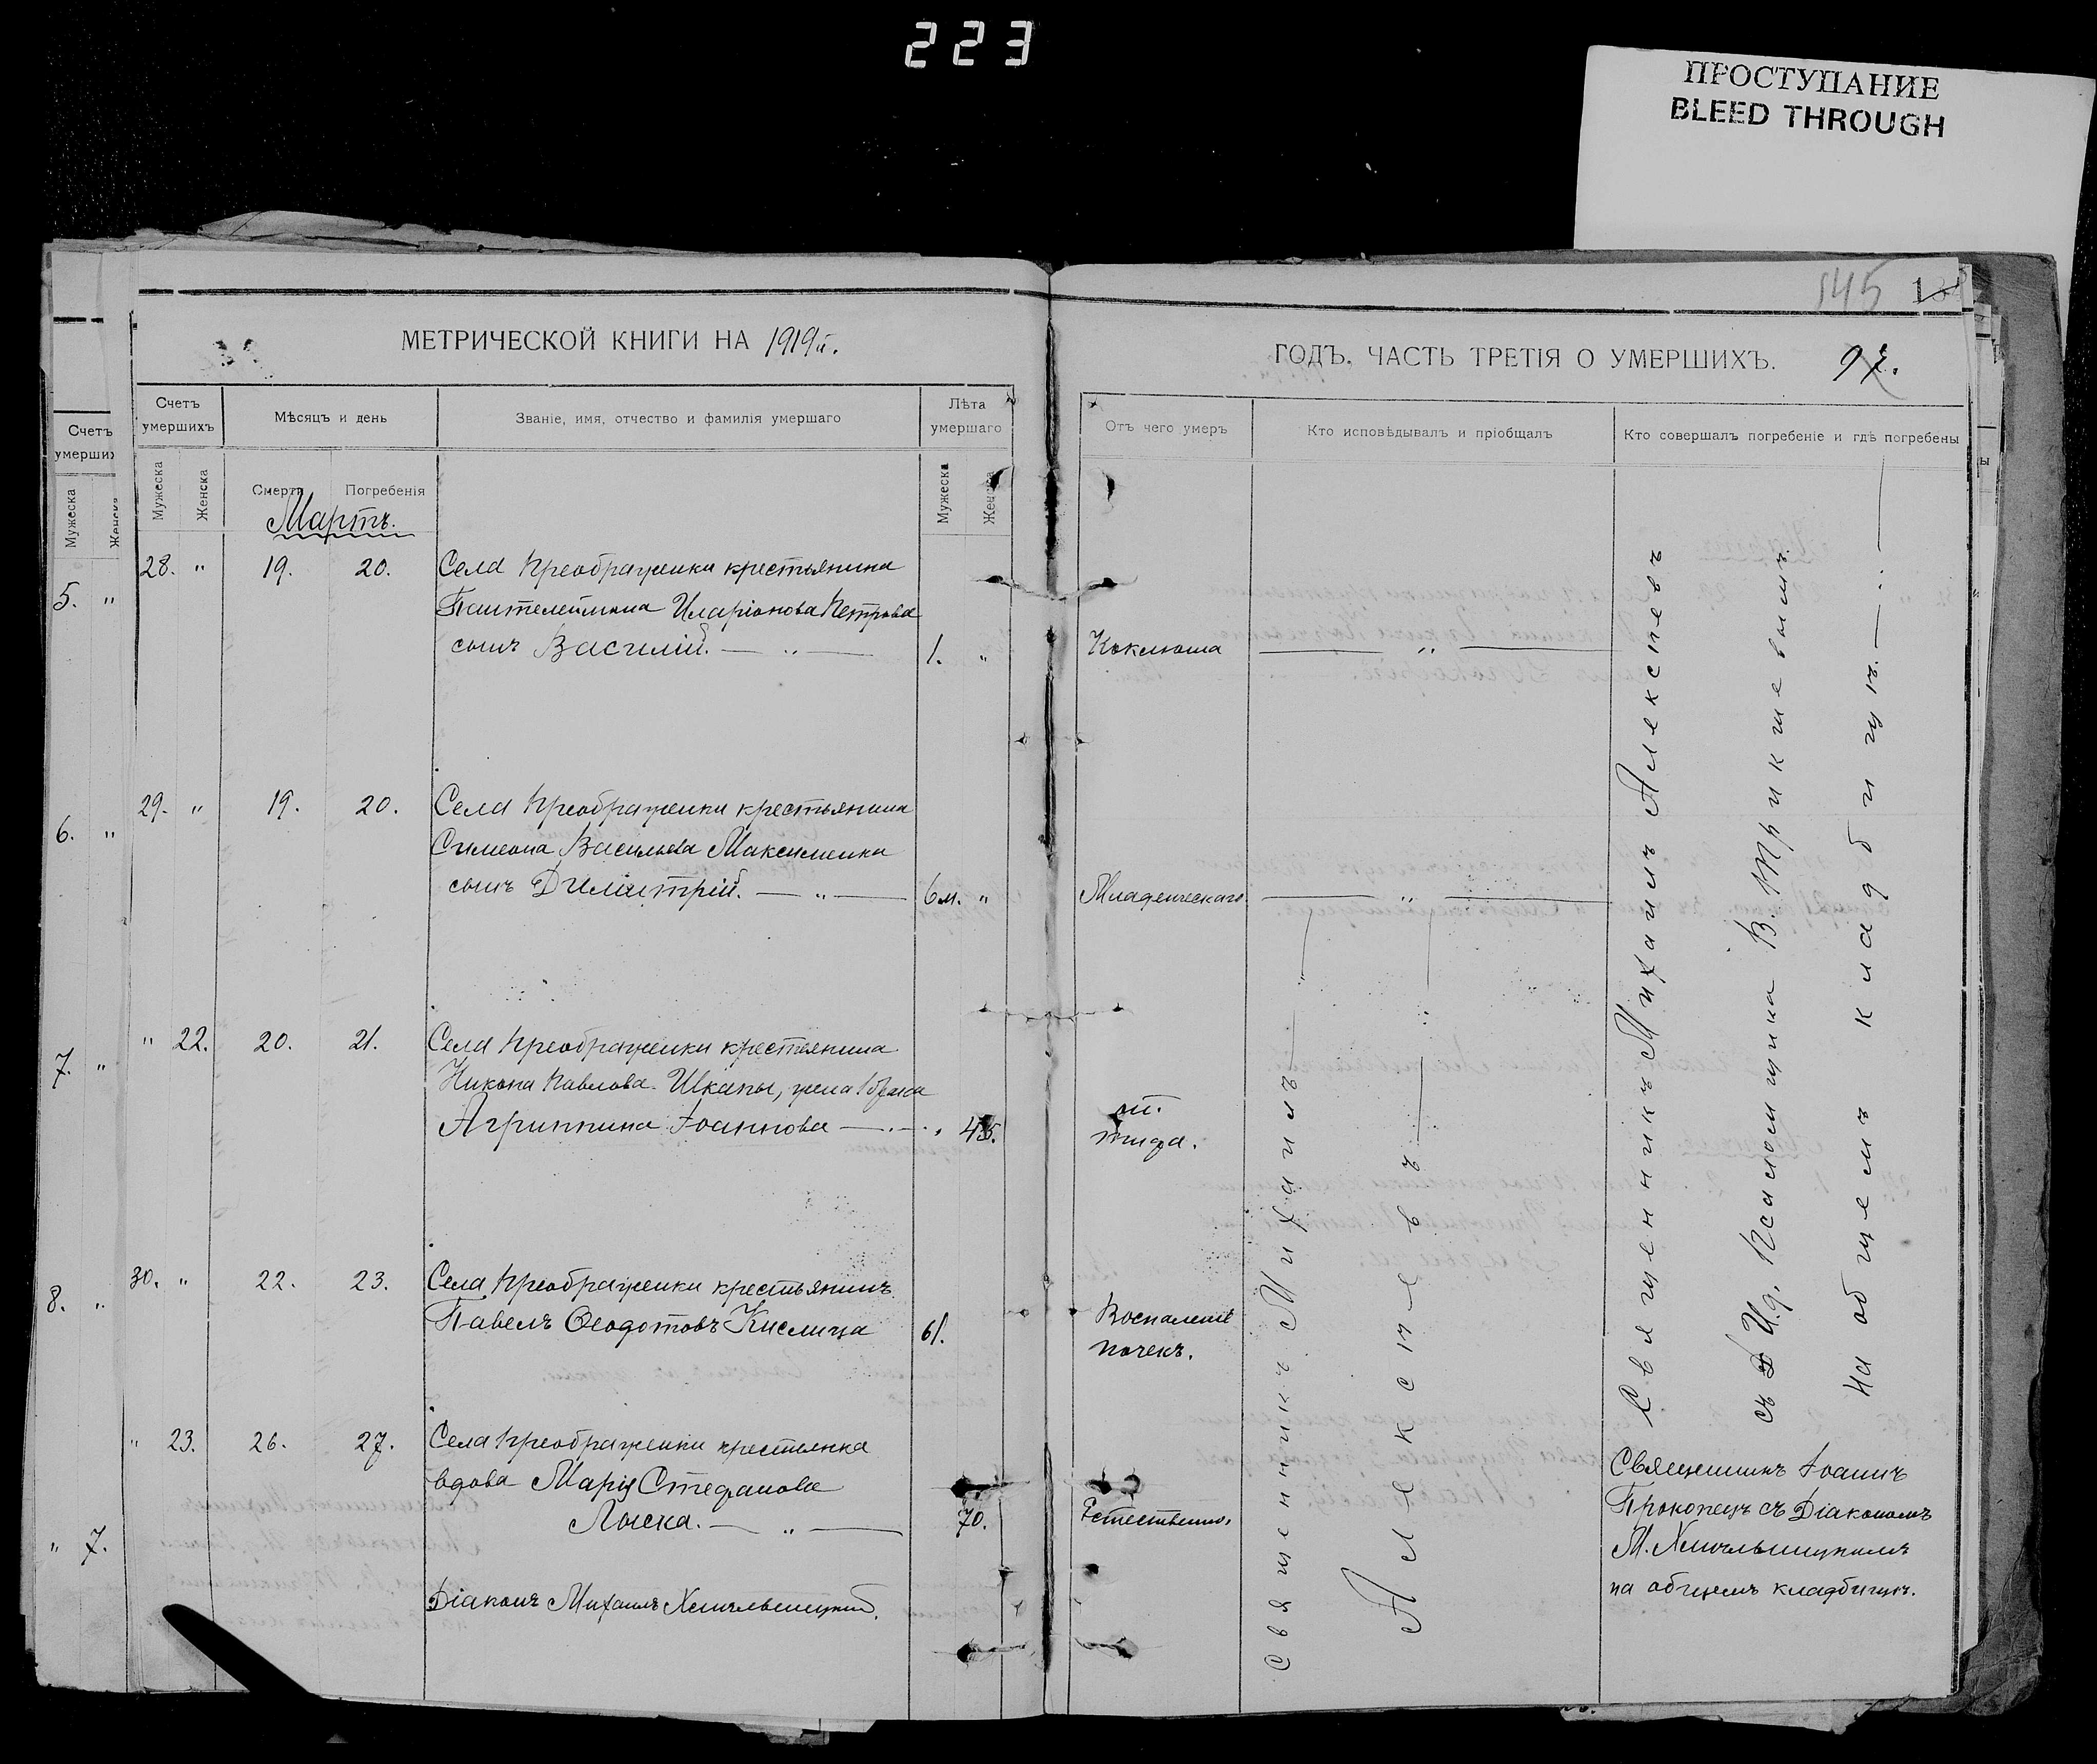 223
ПРОСТУПАНИЕ
BLEED THROUGH
145
МЕТРИЧЕСКОЙ КНИГИ НА 1919й.
ГОДЪ. ЧАСТЬ ТРЕТІЯ О УМЕРШИХЪ. 97.
Счетъ умершихъ
Мѣсяцъ и день
Званіе, имя, отчество и фамилія умершаго
Лѣта умершаго
Отъ чего умеръ
Кто исповѣдывалъ и пріобщалъ
Кто совершалъ погребеніе и гдѣ погребены
Счетъ
Мужеска
Мужеска
Женска
Смерти
Погребенія
Мужеска
Мартъ.
28. " 19. 20. Села Преображенки крестьянина
Пантелеймона Иларіонова Петрова
сынъ Василій. — " — 1. " Коклюша — " —
5. "
29. " 19. 20. Села Преображенки крестьянина
Симеона Васильева Максименки
сынъ Димитрій. — " — 6 м. " Младенческаго — " —
6. "
" 22. 20. 21. Села Преображенки крестьянина
Никона Павлова Шкапы, жена 1 брака
Агриппина Іоаннова — " 45. от тифа.
7. "
30. " 22. 23. Села Преображенки крестьянинъ
Павелъ Ѳеодотовъ Кислица 61. Воспаленіе
почекъ.
8. "
" 23. 26. 27. Села Преображенки крестьянка
вдова Марія Стефанова
Лыска. — " — 70. Естественно.
" 7.
Діаконъ Михаилъ Хмѣльницкій.
Священникъ Михаилъ
Алексѣевъ
Священникъ Михаилъ Алексѣевъ
съ И.д. Псаломщика В. Трикшевымъ
на общемъ кладбищѣ. —
Священникъ Іоаннъ
Прокопецъ съ Діакономъ
М. Хмѣльницкимъ
на общемъ кладбищѣ.